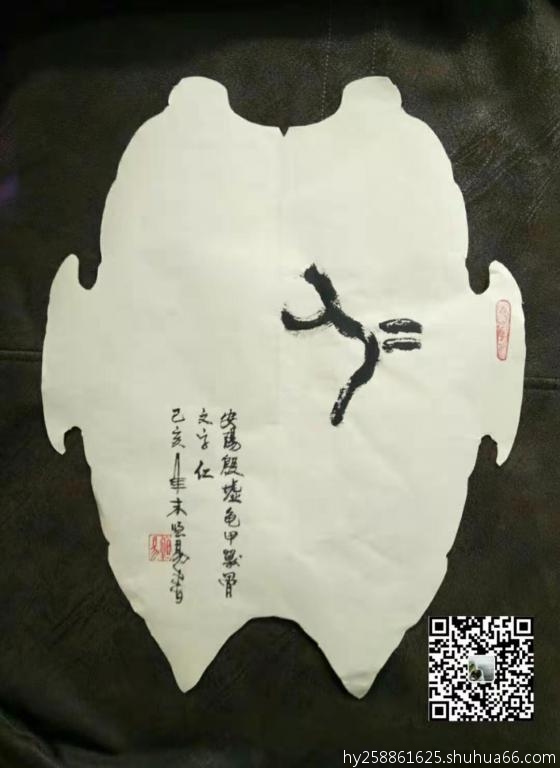 仁
安陽殷墟龟甲獸骨
文字 仁
己亥年末照易書
hy258861625.shuhua66.com